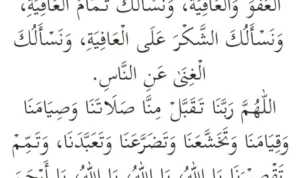 العَفْوَ وَالْعَافِيَةَ، وَنَسْأَلُكَ تَمَامَ الْعَافِيَةِ،
وَنَسْأَلُكَ الشُّكْرَ عَلَى الْعَافِيَةِ، وَنَسْأَلُكَ
الْغِنَى عَنِ النَّاسِ.
اللَّهُمَّ رَبَّنَا تَقَبَّلْ مِنَّا صَلَاتَنَا وَصِيَامَنَا
وَقِيَامَنَا وَتَخَشُّعَنَا وَتَضَرُّعَنَا وَتَعَبُّدَنَا، وَتَمِّمْ
تَقْصِيرَنَا يَا اللهُ يَا اللهُ يَا اللهُ يَا أَرْحَمَ